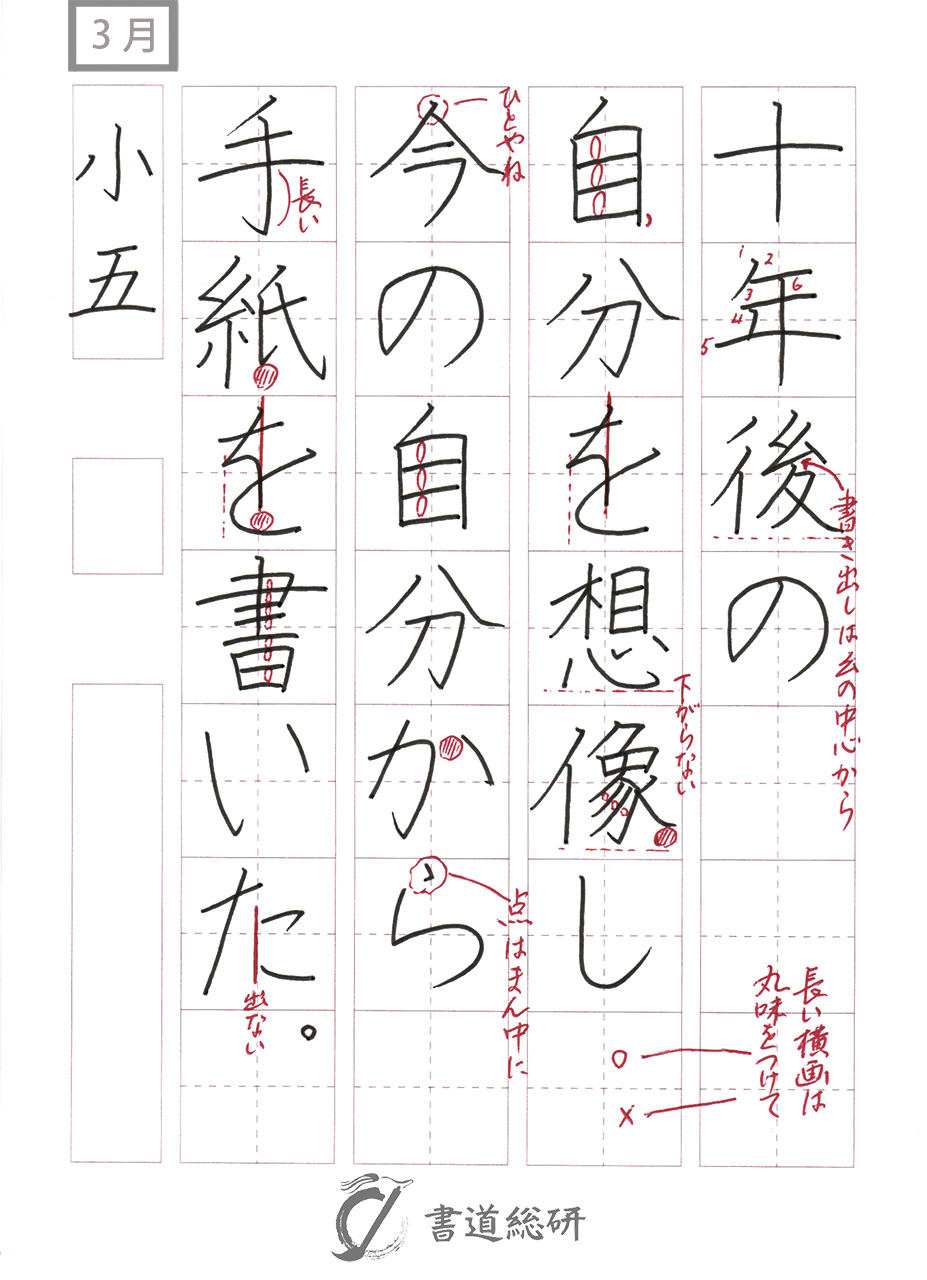 3月
十年後の
自分を想像し
今の自分から
手紙を書いた。
小五
1
2
3
4
5
6
書き出しは幺の中心から
下がらない
ひとやね
長い
点はまん中に
出ない
長い横画は
丸味をつけて
○
×
書道総研